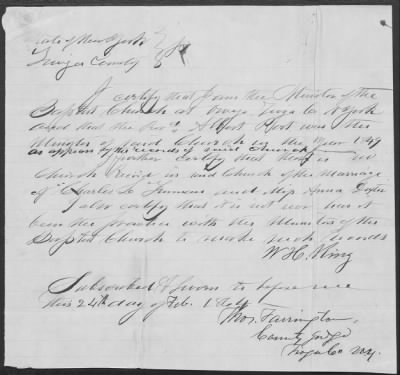 State of New York } ss
Tioga County
I certify that I am the Minister of the
Baptist Church at Tioga Co N York
and that the Rev. A Root was the
Minister of said Church in the Year 1849
as appears by the records of said Church
I further certify that there is no
Church Record in said Church of the Marriage
of Charles L. and Miss Anna
I also certify that it is not nor has it
been the practice with the Ministers of the
Baptist Church to make such records
W H King
Subscribed & Sworn to before me
this 24th day of Feb.
Thos. Farrington
County Judge
Tioga Co N.Y.